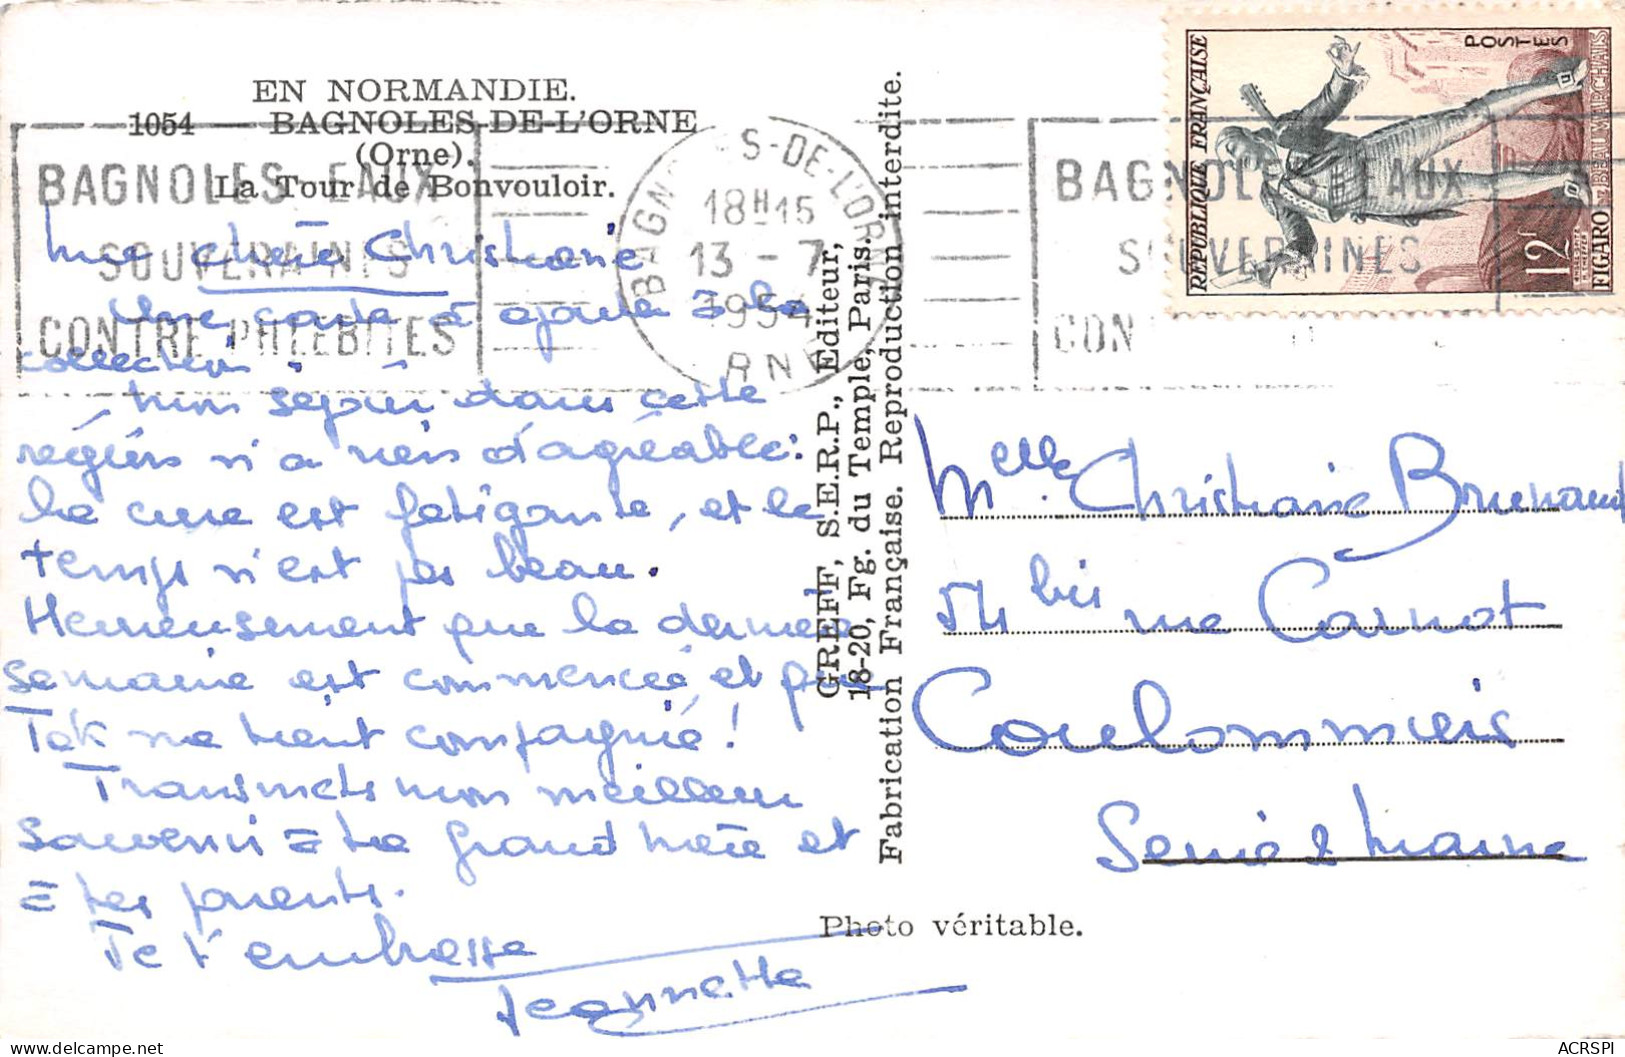 EN NORMANDIE.
1054 — BAGNOLES-DE-L'ORNE
(Orne).
La Tour de Bonvouloir.
BAGNOLES EAUX
SOUVERAINES
CONTRE PHLEBITES
BAGNOLES-DE-L'ORNE
18H15
13 - 7
1954
ORNE
BAGNOLES EAUX
SOUVERAINES
CON
REPUBLIQUE FRANÇAISE
POSTES
12F
FIGARO
BEAUMARCHAIS
Ma chère Christiane
Une carte à ajouter à la
collection.
Mon séjour dans cette
région n'a rien d'agréable:
la cure est fatigante, et le
temps n'est pas beau.
Heureusement que la dernière
semaine est commencée et que
Tek me tient compagnie!
Transmets mon meilleur
souvenir = ta grand mère et
= tes parents.
Je t'embrasse
Jeannette
GREFF, S.E.R.P., Editeur,
18-20, Fg. du Temple, Paris.
Fabrication Française. Reproduction interdite.
Photo véritable.
Melle Christiane Brunaud
54 bis rue Carnot
Coulommiers
Seine & Marne
ACRSPI